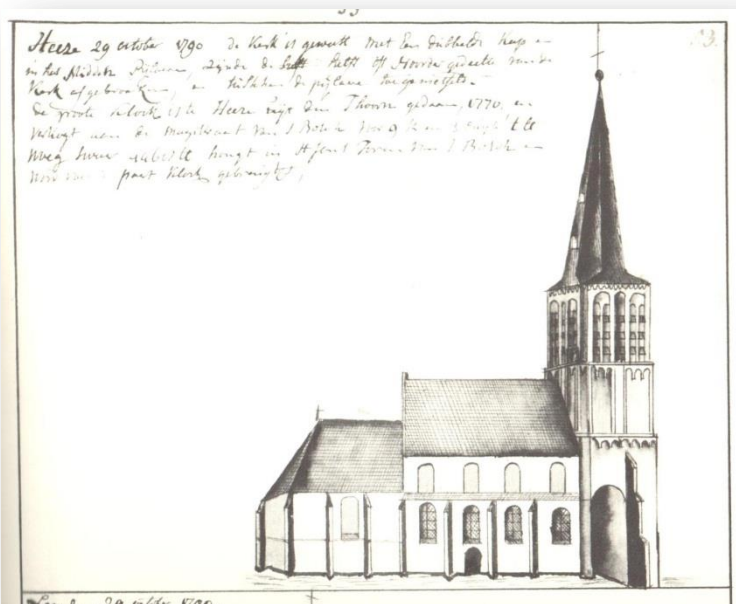 33
33.
Heeze 29 october 1790 de Kerk is geweest met Een dubbelde Kap en
in het Midden Pilaren, zijnde de helft of Noorde gedeelte van de
Kerk afgebrooken, en tusschen de pylaren toegemetselt.
de groote Klock is te Heeze uijt den Thoorn gedaan, 1770, en
verkogt aen de magistraat van s Bosch voor
weeg hangt in St Jans Thoorn van s Bosch
paart klock gebruigt,
29 october 1790